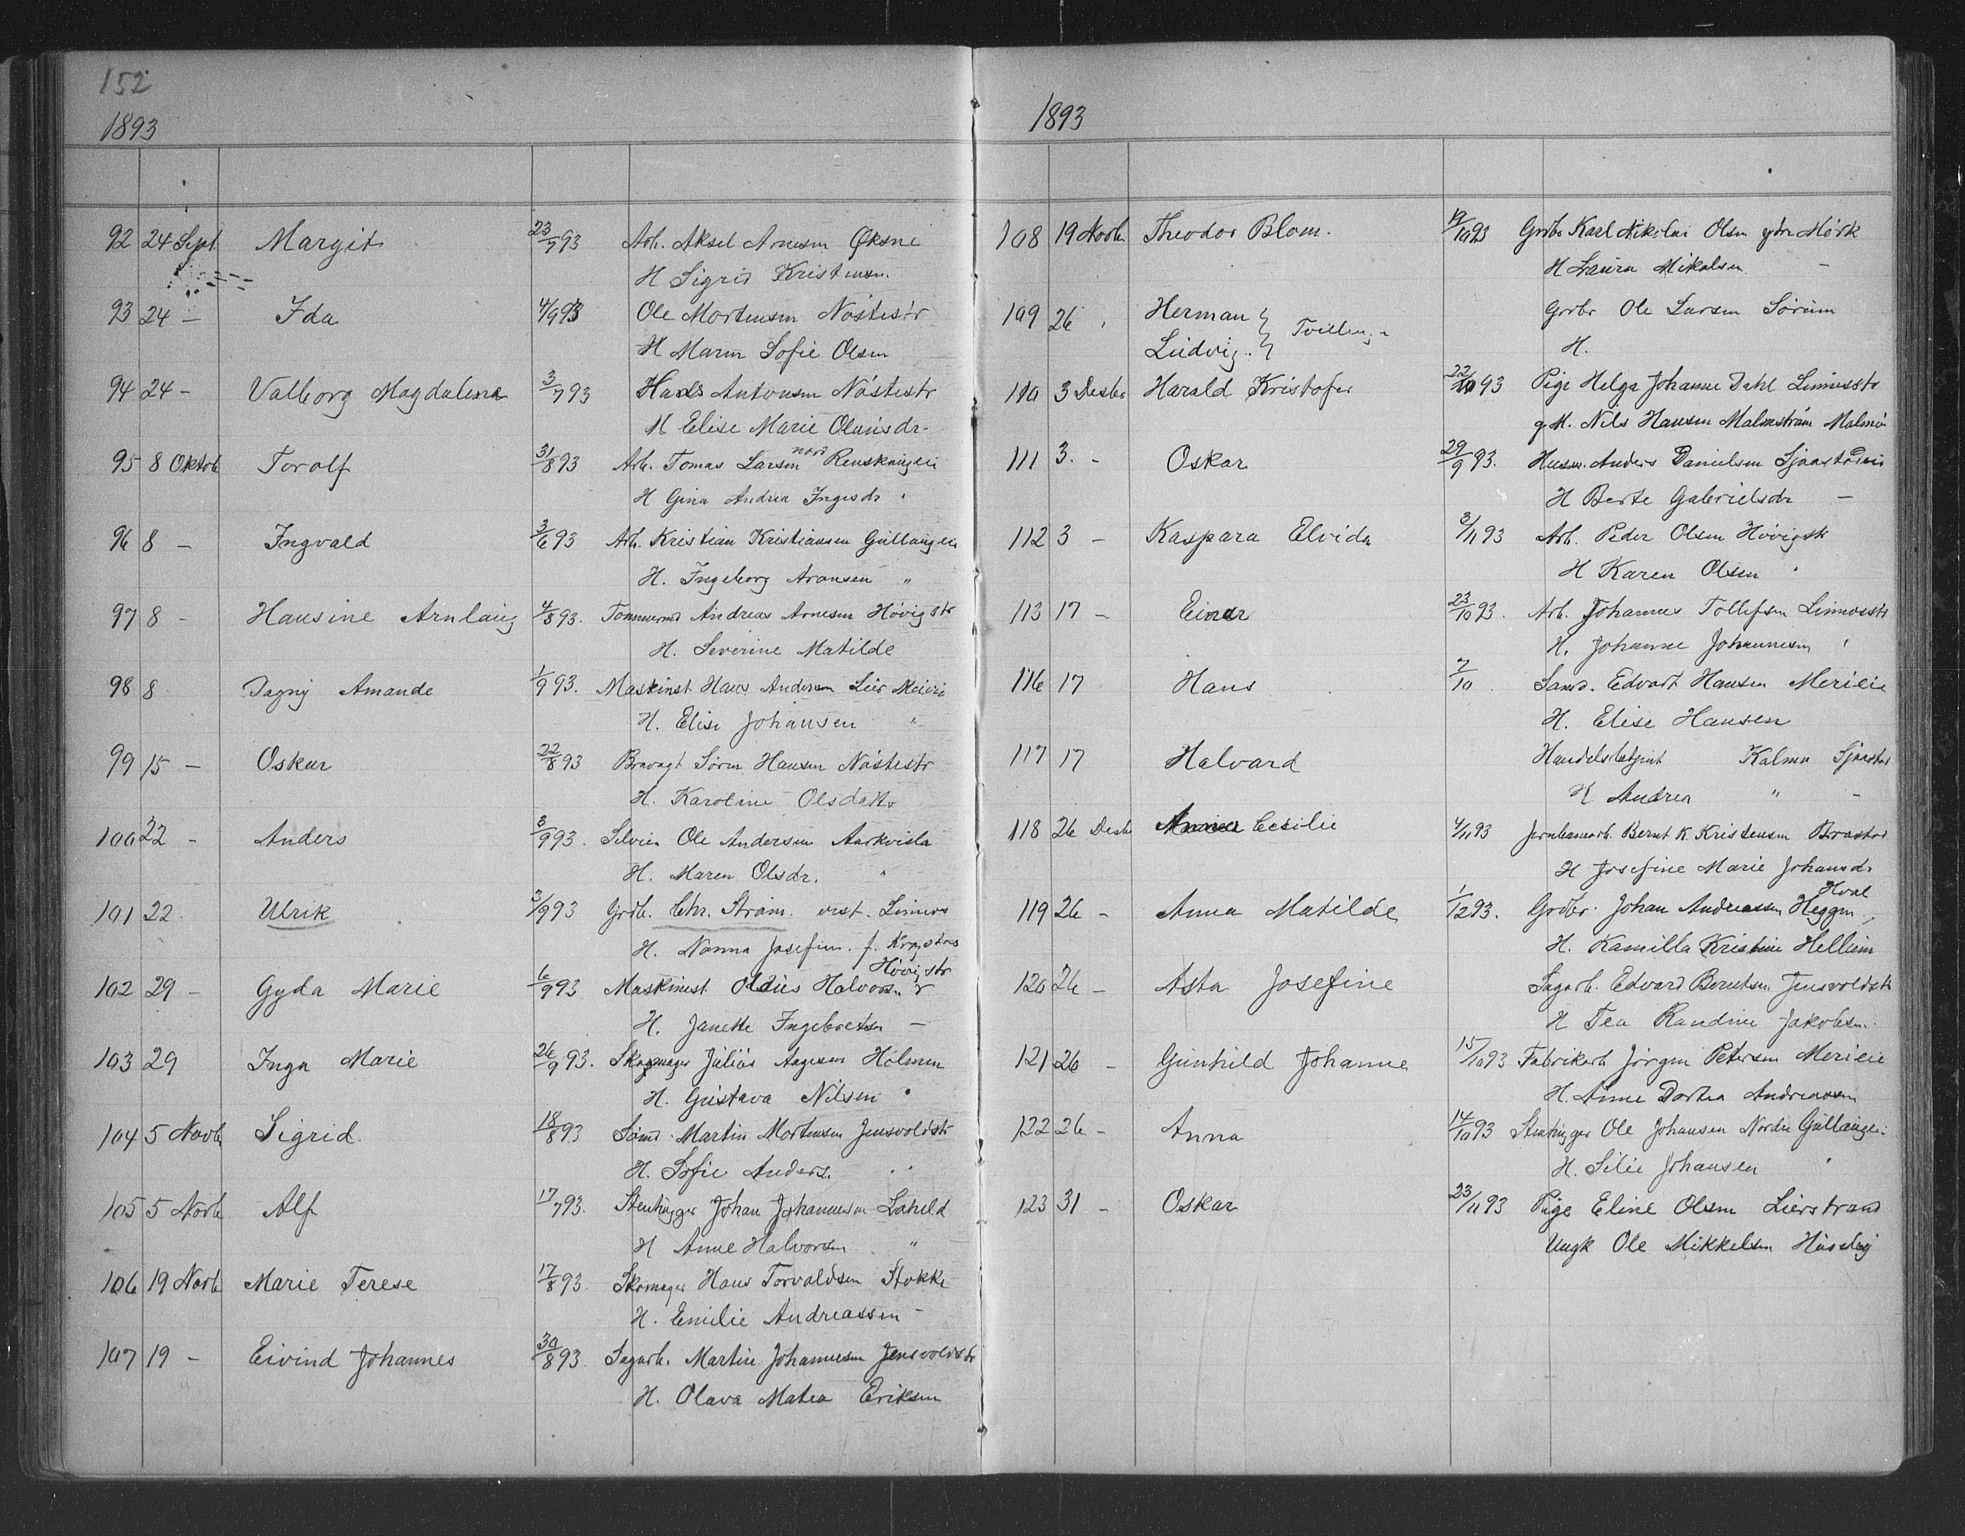 152
1893
92 24 Sept Margit 23/7 93 Arb. Aksel Arnesen Øksne
H Sigrid Kristensen
93 24 - Ida 4/9 93 Ole Mortensen Nöstestr
H Maren Sofie Olsen
94 24 - Valborg Magdalena 3/7 93 Hans Antonsen Nöstestr
H Elise Marie Olausdr -
95 8 Oktob Torolf 31/8 93 Arb. Tomas Larsen nord Renskaugeie
H Gina Andrea Ingesdr "
96 8 - Ingvald 3/6 93 Arb. Kristian Kristiansen Gullaugeie
H. Ingeborg Aronsen "
97 8 - Hansine Arnlaug 4/8 93. Tømmermd Andreas Arnesen Høvigstr
H. Severine Matilde
98 8 Dagny Amande 1/9 93. Maskinst Hans Andersen Lier Meieri
H. Elise Johansen "
99 15 - Oskar 22/8 93 Brovagt Sören Hansen Nöstestr
H. Karoline Olsdattr
100 22 - Anders 8/9 93. Selveier Ole Andersen Aarkvisla
H. Maren Olsdr. "
101 22. Ulrik 3/9 93 Grdb. Chr. Strøm. vest. Linnes
H. Nanna Josefine. f. Kragstad
102 29 - Gyda Marie 6/9 93 Maskinist Oldus Halvorsen Høvigstr
H. Janette Ingebretsen -
103 29 Inga Marie 26/9 93. Skomager Julius Aagesen Holmen
H. Gustava Nilsen "
104 5 Novb Sigrid. 18/8 93 Sømd. Martin Mortensen Jensvoldstr
H. Sofie Anders. " "
105 5 Novb Alf 17/7 93. Stenhugger Johan Johannesen Laheld
H Anne Halvorsen "
106 19 Novb Marie Terese 17/8 93. Skomager Hans Torvaldsen Stokke
H. Emilie Andreassen -
107 19 - Eivind Johannes 30/8 93. Sagarb. Martin Johannesen Jensvoldstr
H. Olava Matea Eriksen
1893
108 19 Novb Theodor Blom. 19/10 93 Grdbr Karl Nikolai Olsen ytre Mørk
H Laura Mikalsen -
109 26 " Herman } Tvillinger Grdbr Ole Larsen Sørum
Ludvig. } H.
110 3 Desbr Harald Kristofer 22/10 93 Pige Helga Johanne Dahl Linnesstr
g.M. Nils Hansen Malmström Malmö
111 3. - Oskar 29/9 93. Husm. Anders Danielsen Sjaastadeie
H Berte Gabrielsdr -
112 3 - Kaspara Elvida 3/11 93 Arb. Peder Olsen Høvigstr
H Karen Olsen "
113 17 - Einar 23/10 93. Arb. Johannes Tollefsen Linnesstr
H. Johanne Johannesen "
116 17 Hans 7/10 Sømd. Edvart Hansen Merieie
H. Elise Hansen
117 17 Halvard Handelsbetjent Kalmo Sjaastad
H Andrea " -
118 26 Desb Cecilie 4/11 93 Jernbanearb. Bernt K. Kristensen Brastad
H Josefine Marie Johansdr
119 26 - Anna Matilde 1/12 93. Grdbr. Johan Andreassen Heggen Hval
H. Kamilla Kristine Hellum
120 26 - Asta Josefine Sagarb. Edvard Berntsen Jensvoldstr
H Tea Randine Jakobsen.
121 26 - Gunhild Johanne 15/10 93 Fabrikarb Jörgen Petersen Merieie
H. Anne Dortea Andreassen
122 26 - Anna 14/10 93 Stenhugger Ole Johansen Nordre Gullaugeie
H. Silie Johansen "
123 31 - Oskar 23/11 93 Pige Eline Olsen Lierstrand
Ungk Ole Mikkelsen